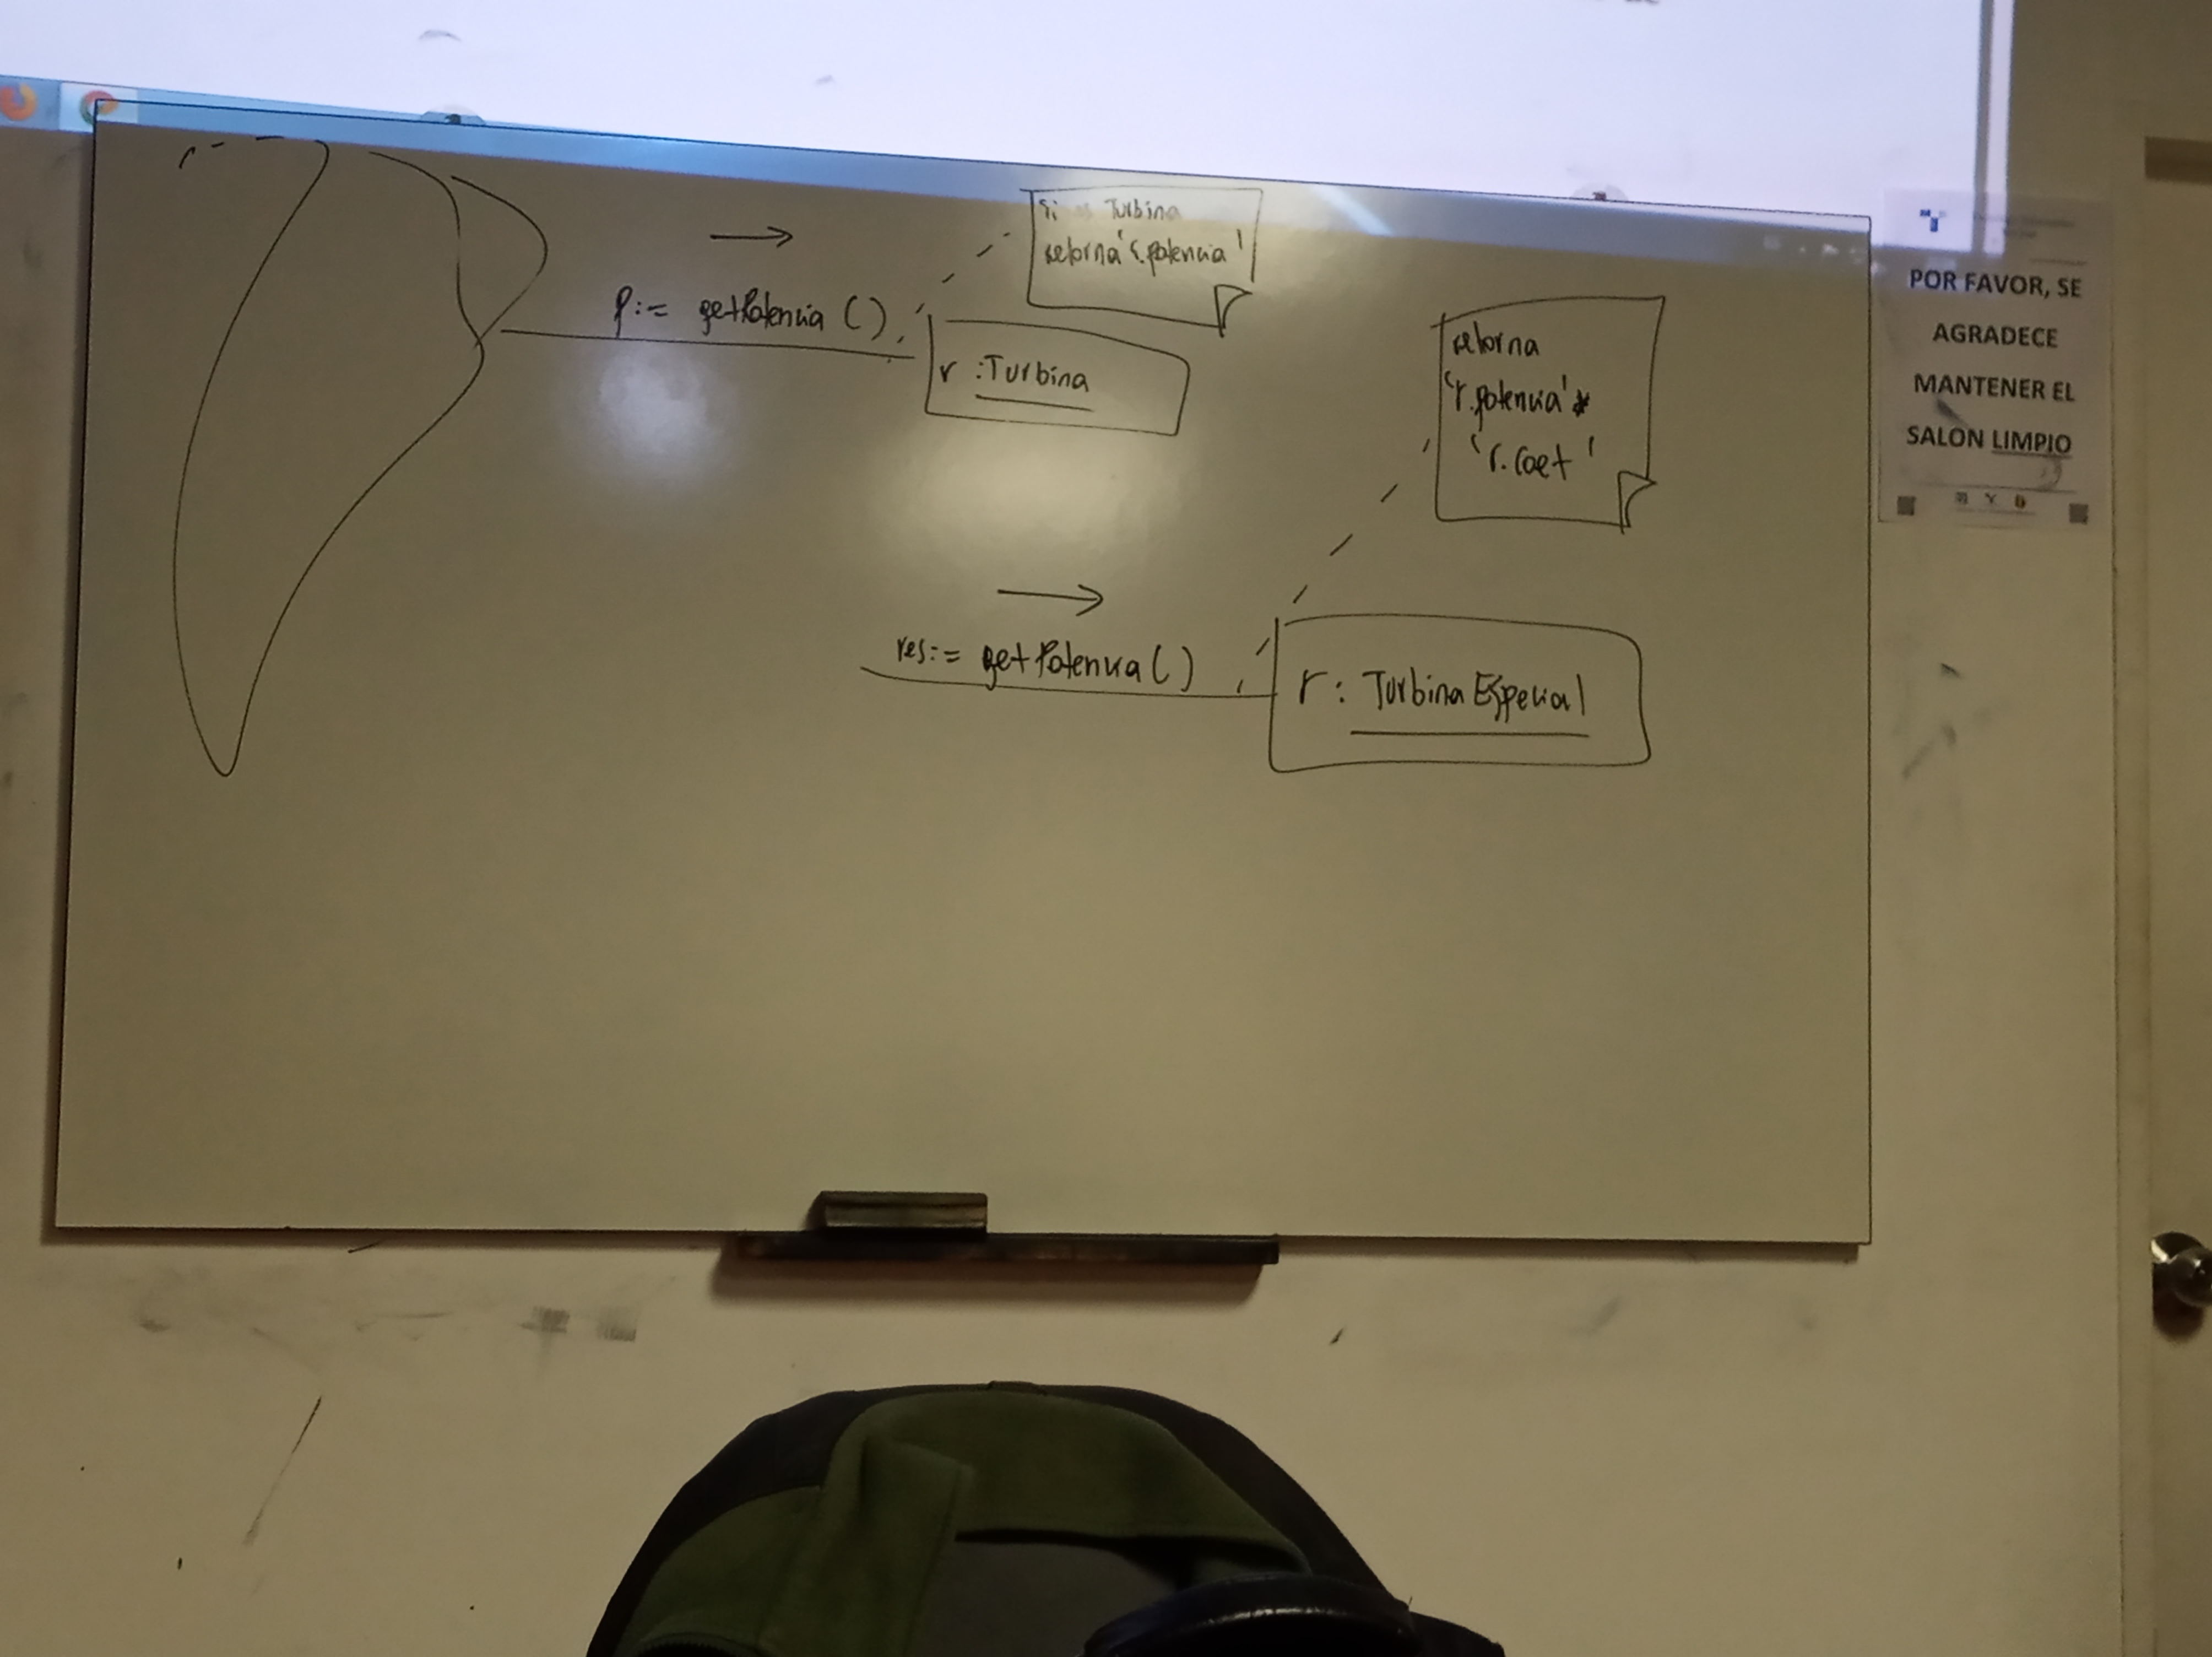 si es Turbina
retorna 'r.potencia'
p:= getPotencia ()
r :Turbina
retorna
'r.potencia' *
'r.coef'
res:= getPotencia ()
r : Turbina Especial
POR FAVOR, SE
AGRADECE
MANTENER EL
SALON LIMPIO